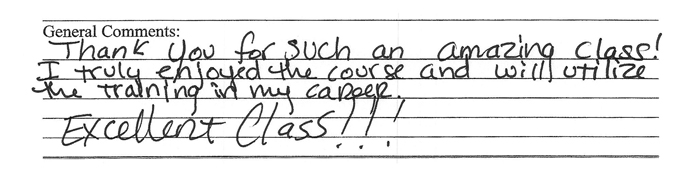 General Comments:
Thank you for such an amazing class!
I truly enjoyed the course and will utilize
the training in my career.
Excellent Class!!!